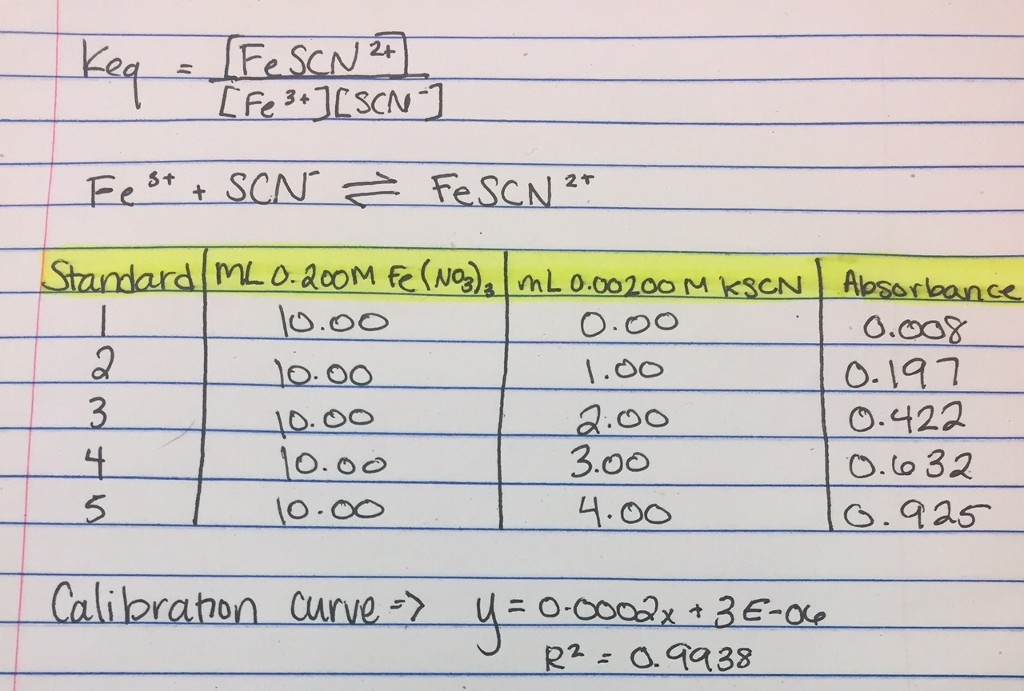 Keq = [FeSCN²⁺]
[Fe³⁺][SCN⁻]
Fe³⁺ + SCN⁻ ⇌ FeSCN²⁺
Standard | mL 0.200M Fe(NO₃)₃ | mL 0.00200 M KSCN | Absorbance
1 | 10.00 | 0.00 | 0.008
2 | 10.00 | 1.00 | 0.197
3 | 10.00 | 2.00 | 0.422
4 | 10.00 | 3.00 | 0.632
5 | 10.00 | 4.00 | 0.925
Calibration curve => y = 0.0002x + 3E-06
R² = 0.9938